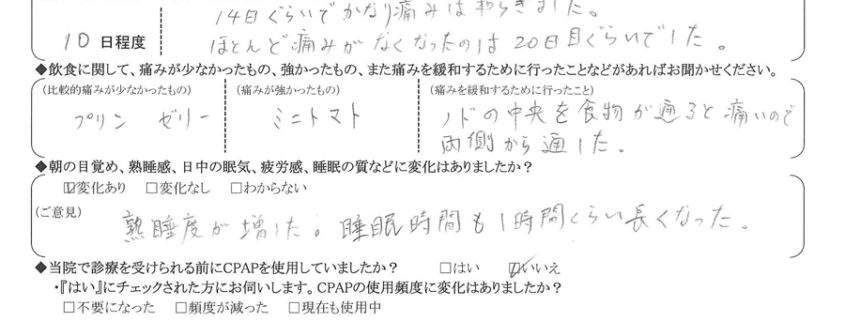 14日ぐらいでかなり痛みは和らぎました。
10 日程度 ほとんど痛みがなくなったのは20日目ぐらいでした。
◆飲食に関して、痛みが少なかったもの、強かったもの、また痛みを緩和するために行ったことなどがあればお聞かせください。
(比較的痛みが少なかったもの) (痛みが強かったもの) (痛みを緩和するために行ったこと)
プリン ゼリー ミニトマト ノドの中央を食物が通ると痛いので
両側から通した。
◆朝の目覚め、熟睡感、日中の眠気、疲労感、睡眠の質などに変化はありましたか?
☑変化あり □変化なし □わからない
(ご意見) 熟睡度が増した。睡眠時間も1時間くらい長くなった。
◆当院で診療を受けられる前にCPAPを使用していましたか? □はい ☑いいえ
・『はい』にチェックされた方にお伺いします。CPAPの使用頻度に変化はありましたか?
□不要になった □頻度が減った □現在も使用中